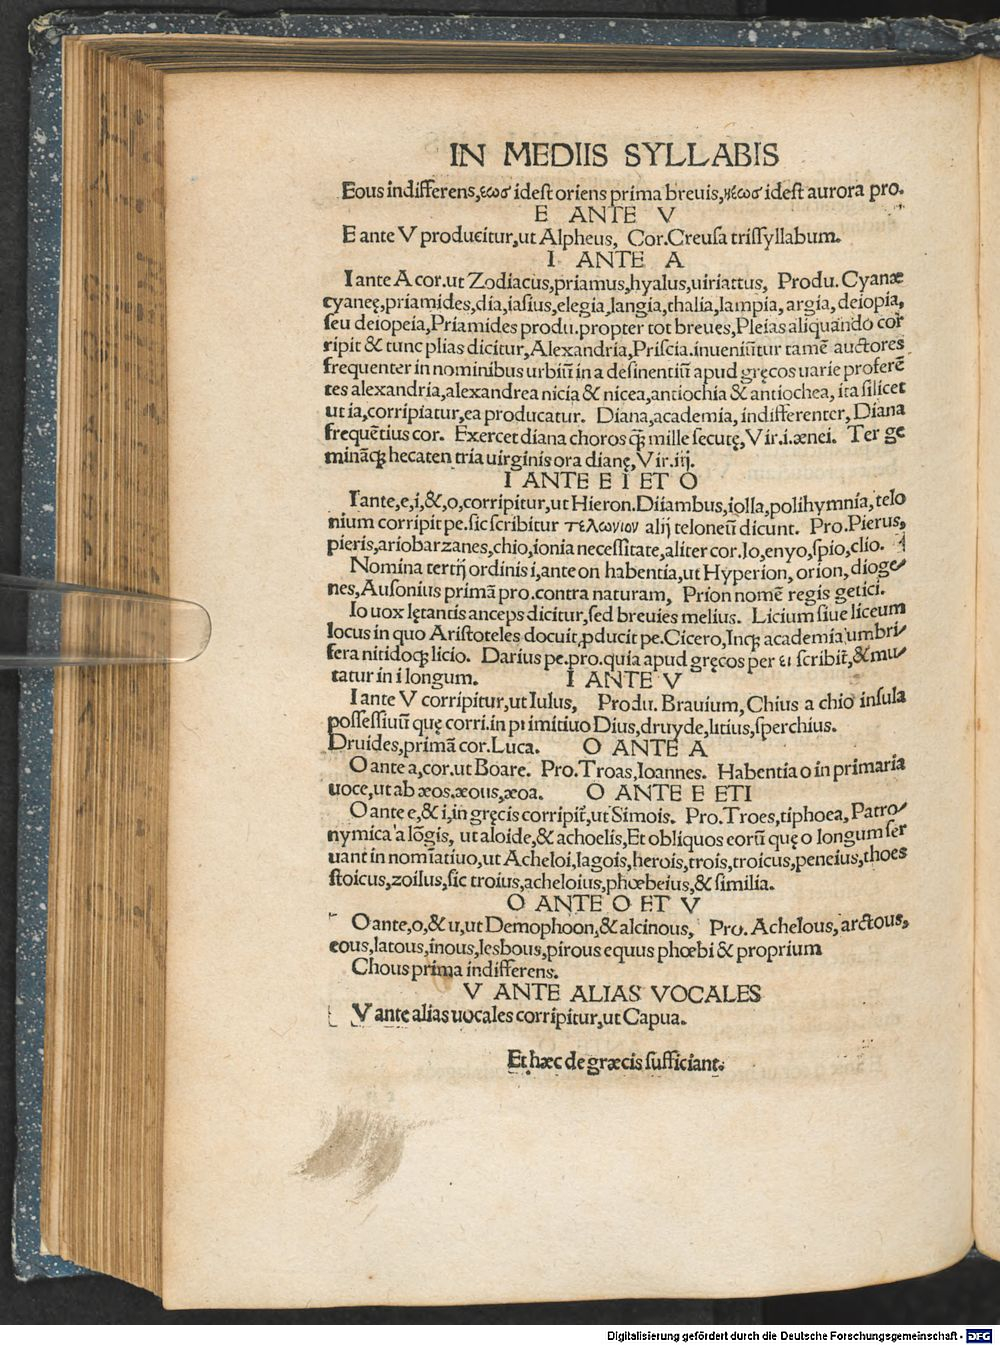 IN MEDIIS SYLLABIS
Eous indifferens, εωσ idest oriens prima breuis, ηέωσ idest aurora pro.
E ANTE V
E ante V producitur, ut Alpheus, Cor. Creusa trissyllabum.
I ANTE A
I ante A cor. ut Zodiacus, priamus, hyalus, uiriattus, Produ. Cyanæ
cyaneę, priamides, dia, iasius, elegia, langia, thalia, lampia, argia, deiopia,
seu deiopeia, Priamides produ. propter tot breues, Pleias aliquando cor
ripit & tunc plias dicitur, Alexandria, Priscia. inueniũtur tamẽ auctores
frequenter in nominibus urbiũ in a desinentiũ apud gręcos uarie proferẽ
tes alexandria, alexandrea nicia & nicea, antiochia & antiochea, ita silicet
ut ia, corripiatur, ea producatur. Diana, academia, indifferenter, Diana
frequẽtius cor. Exercet diana choros quą mille secutę, Vir. i. ænei. Ter ge
minãqꝫ hecaten tria uirginis ora dianę, Vir. iiij.
I ANTE E I ET O
I ante, e, i, &, o, corripitur, ut Hieron. Diiambus, iolla, polihymnia, telo
nium corripit pe. sic scribitur τελωνιον alij teloneũ dicunt. Pro. Pierus,
pieris, ariobarzanes, chio, ionia necessitate, aliter cor. Jo, enyo, spio, clio.
Nomina tertij ordinis i, ante on habentia, ut Hyperion, orion, dioge⸗
nes, Ausonius primã pro. contra naturam, Prion nomẽ regis getici.
Io uox lętantis anceps dicitur, sed breuies melius. Licium siue liceum
locus in quo Aristoteles docuit, ꝓducit pe. Cicero, Inqꝫ academia umbri⸗
fera nitidoqꝫ licio. Darius pe. pro. quia apud gręcos per ει scribit̃, & mu⸗
tatur in i longum. I ANTE V
I ante V corripitur, ut Iulus, Produ. Brauium, Chius a chio insula
possessiuũ quę corri. in primitiuo Dius, druyde, litius, sperchius.
Druides, primã cor. Luca. O ANTE A
O ante a, cor. ut Boare. Pro. Troas, Ioannes. Habentia o in primaria
uoce, ut ab æos. æous, æoa. O ANTE E ETI
O ante e, & i, in gręcis corripit̃, ut Simois. Pro. Troes, tiphoea, Patro⸗
nymica a lõgis, ut aloide, & achoelis, Et obliquos eorũ quę o longum ser
uant in nomĩatiuo, ut Acheloi, lagois, herois, trois, troicus, peneius, thoes
stoicus, zoilus, sic troius, acheloius, phœbeius, & similia.
O ANTE O ET V
O ante, o, & u, ut Demophoon, & alcinous, Pro. Achelous, arctous,
eous, latous, inous, lesbous, pirous equus phœbi & proprium
Chous prima indifferens.
V ANTE ALIAS VOCALES
V ante alias uocales corripitur, ut Capua.
Et hæc de græcis sufficiant.
Digitalisierung gefördert durch die Deutsche Forschungsgemeinschaft - DFG